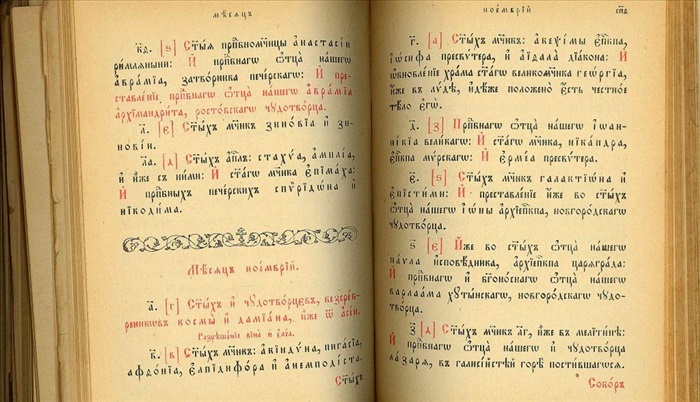 мѣ́сѧцъ
к҃д. [ѕ] Ст҃ы́ѧ прпⷣбномч҃ницы а҆настасі́и
ри́млѧныни: И҆ прпⷣбнагѡ ѻ҆тца̀ на́шегѡ
а҆вра́мїа, затво́рника пече́рскагѡ: И҆ пре-
ставле́нїе прпⷣбнагѡ ѻ҆тца̀ на́шегѡ а҆вра́мїа
а҆рхїмандрі́та, росто́вскагѡ чꙋдотво́рца.
л҃. [є] Ст҃ы́хъ мч҃никъ зино́вїа и҆ зи-
нові́и.
л҃а. [д] Ст҃ы́хъ а҆пⷭ҇лъ: ста́хѵа, а҆мплі́а,
и҆ и҆̀же съ ни́ми: И҆ ст҃а́гѡ мч҃ника є҆пїма́ха:
И҆ прпⷣбныхъ пече́рскихъ спѷрїдѡ́на и҆
нїкоди́ма.
Мѣ́сѧцъ ное́мврїй.
а҃. [г] Ст҃ы́хъ и҆ чꙋдотво́рцєвъ, безсре́б-
рєникѡвъ космы̀ и҆ дамїа́на, и҆̀же ѿ а҆сі́и.
Разрѣше́нїе вїна̀ и҆ є҆ле́а.
в҃. [в] Ст҃ы́хъ мч҃никъ: а҆кїнди́на, пига́сїа,
а҆фѳо́нїа, є҆лпїдифо́ра и҆ а҆немподі́ста.
Ст҃ы́хъ
ное́мврїй
г҃. [а] Ст҃ы́хъ мч҃никъ: а҆кеѱі́мы є҆пⷭ҇кпа,
і҆ѡ́сифа пресвѵ́тера, и҆ а҆їѳа́ла дїа́кона: И҆
ѡ҆бновле́нїе хра́ма ст҃а́гѡ великомч҃ника геѡ́ргїа,
и҆́же въ лѵ́дѣ, и҆дѣ́же положено̀ є҆́сть че́стное
тѣ́ло є҆гѡ̀.
д҃. [з] Прпⷣбнагѡ ѻ҆тца̀ на́шегѡ і҆ѡанн-
ні́кїа вели́кагѡ: И҆ ст҃а́гѡ мч҃ника, нїка́ндра,
є҆пⷭ҇кпа мѷрскагѡ: И҆ є҆рме́а пресвѵ́тера.
є҃. [ѕ] Ст҃ы́хъ мч҃никъ галактїѡ́на и҆
є҆пїсти́мїи: И҆ преставле́нїе и҆́же во ст҃ы́хъ
ѻ҆тца̀ на́шегѡ і҆ѡ́ны а҆рхїепⷭ҇кпа, новгоро́дскагѡ
чꙋдотво́рца.
ѕ҃ [є] И҆́же во ст҃ы́хъ ѻ҆тца̀ на́шегѡ
па́ѵла и҆сповѣ́дника, а҆рхїепⷭ҇кпа царѧгра́да:
И҆ прпⷣбнагѡ и҆ бг҃оно́снагѡ ѻ҆тца̀ на́шегѡ
варлаа́ма хꙋты́нскагѡ, новгоро́дскагѡ чꙋдо-
тво́рца.
з҃ [д] Ст҃ы́хъ мч҃никъ л҃г, и҆̀же въ мелїті́нѣ:
И҆ прпⷣбнагѡ ѻ҆тца̀ на́шегѡ и҆ чꙋдотво́рца
ла́зарѧ, въ галисі́йстѣй горѣ̀ пости́вшагѡсѧ.
Собо́ръ